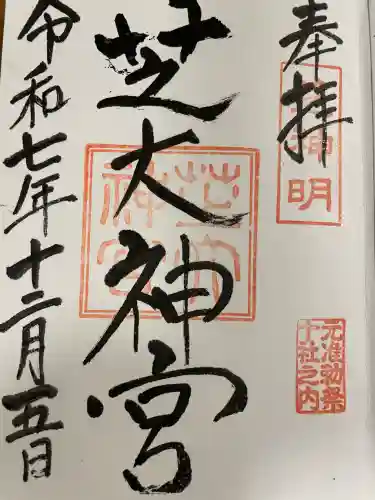 奉拝
神明
元准勅祭
十社之内
芝大神宮
芝大
神宮
令和七年十二月五日